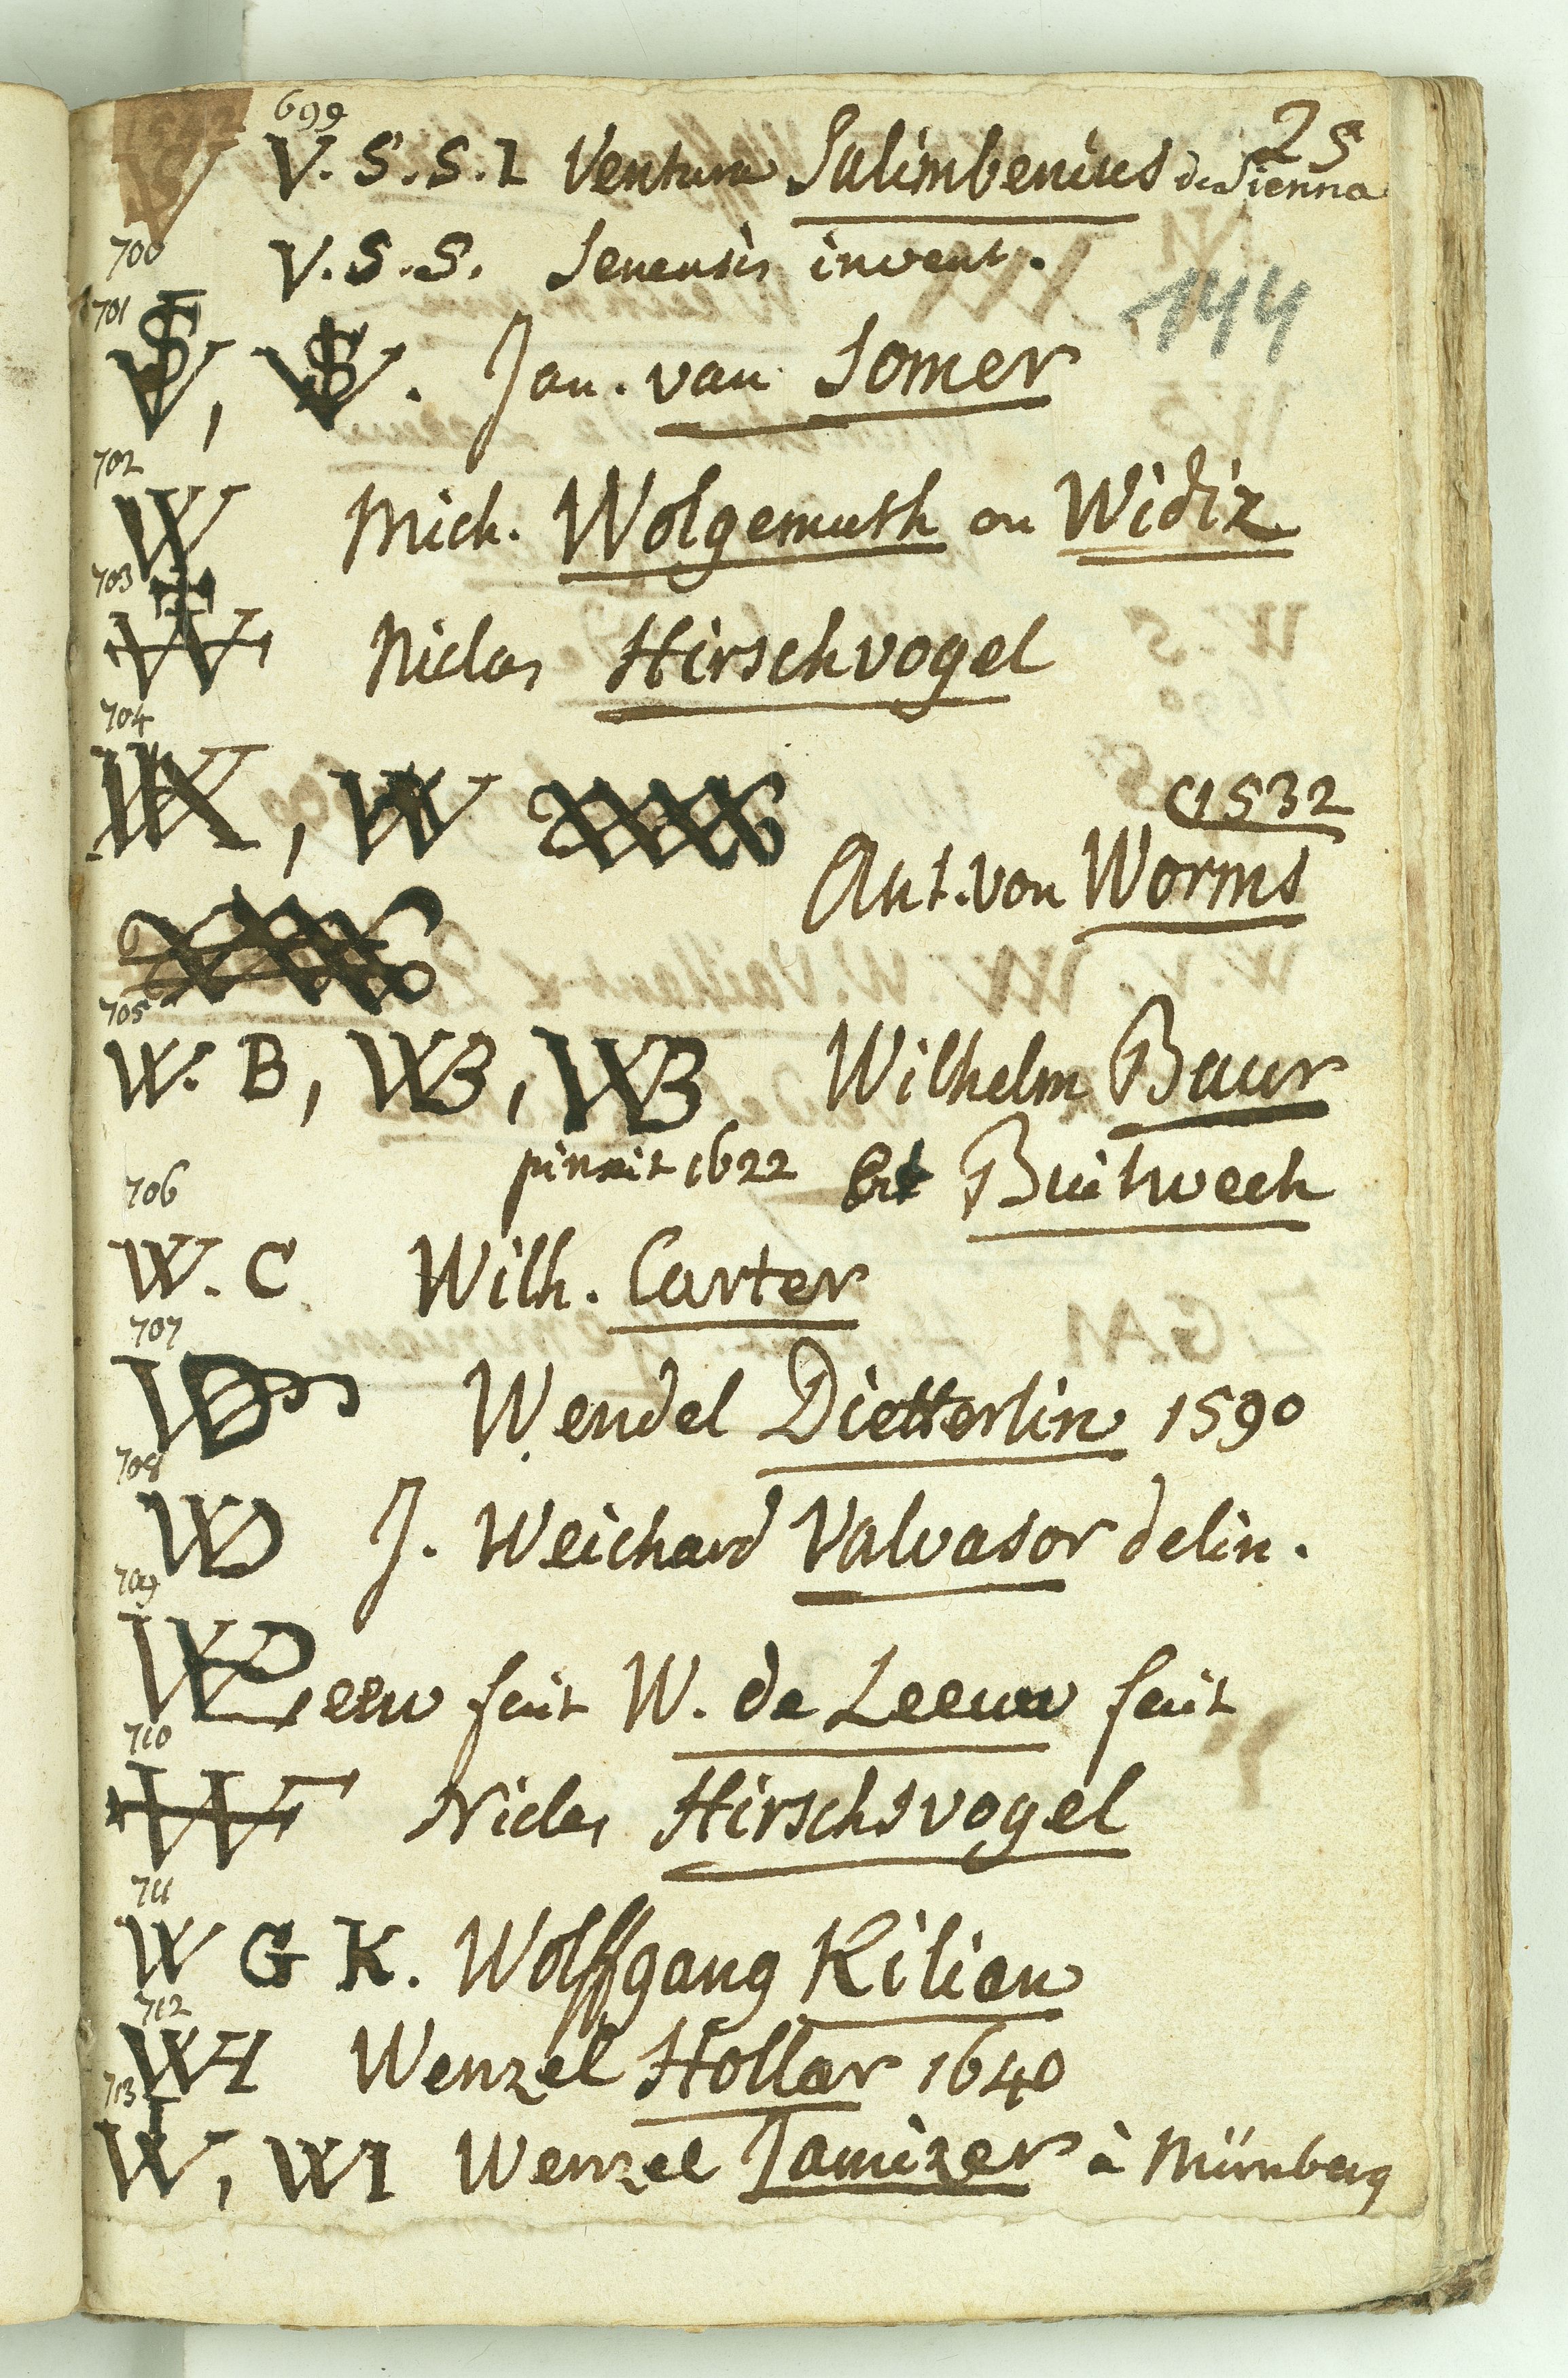 699
25
V. S. S. I Ventura Salimbenius de Sienna
700
V. S. S. Senensis invent.
144
701
VS, VS. Jan. van Somer
702
W Mich. Wolgemuth ou Widiz
703
W Niclas Hirschvogel
704
W, W
1532
Ant. von Worms
705
W. B, WB, WB Wilhelm Baur
pinxit 1622 et Buitwech
706
W. C Wilh. Carter
707
WD Wendel Dietterlin 1590
708
WD J. Weichard Valvasor delin.
709
WDLeeuw fecit W. de Leeuw fecit
710
W Niclas Hirschsvogel
711
W G K. Wolffgang Kilian
712
WH Wenzel Hollar 1640
713
W, WI Wenzel Jamizer à Nürnberg